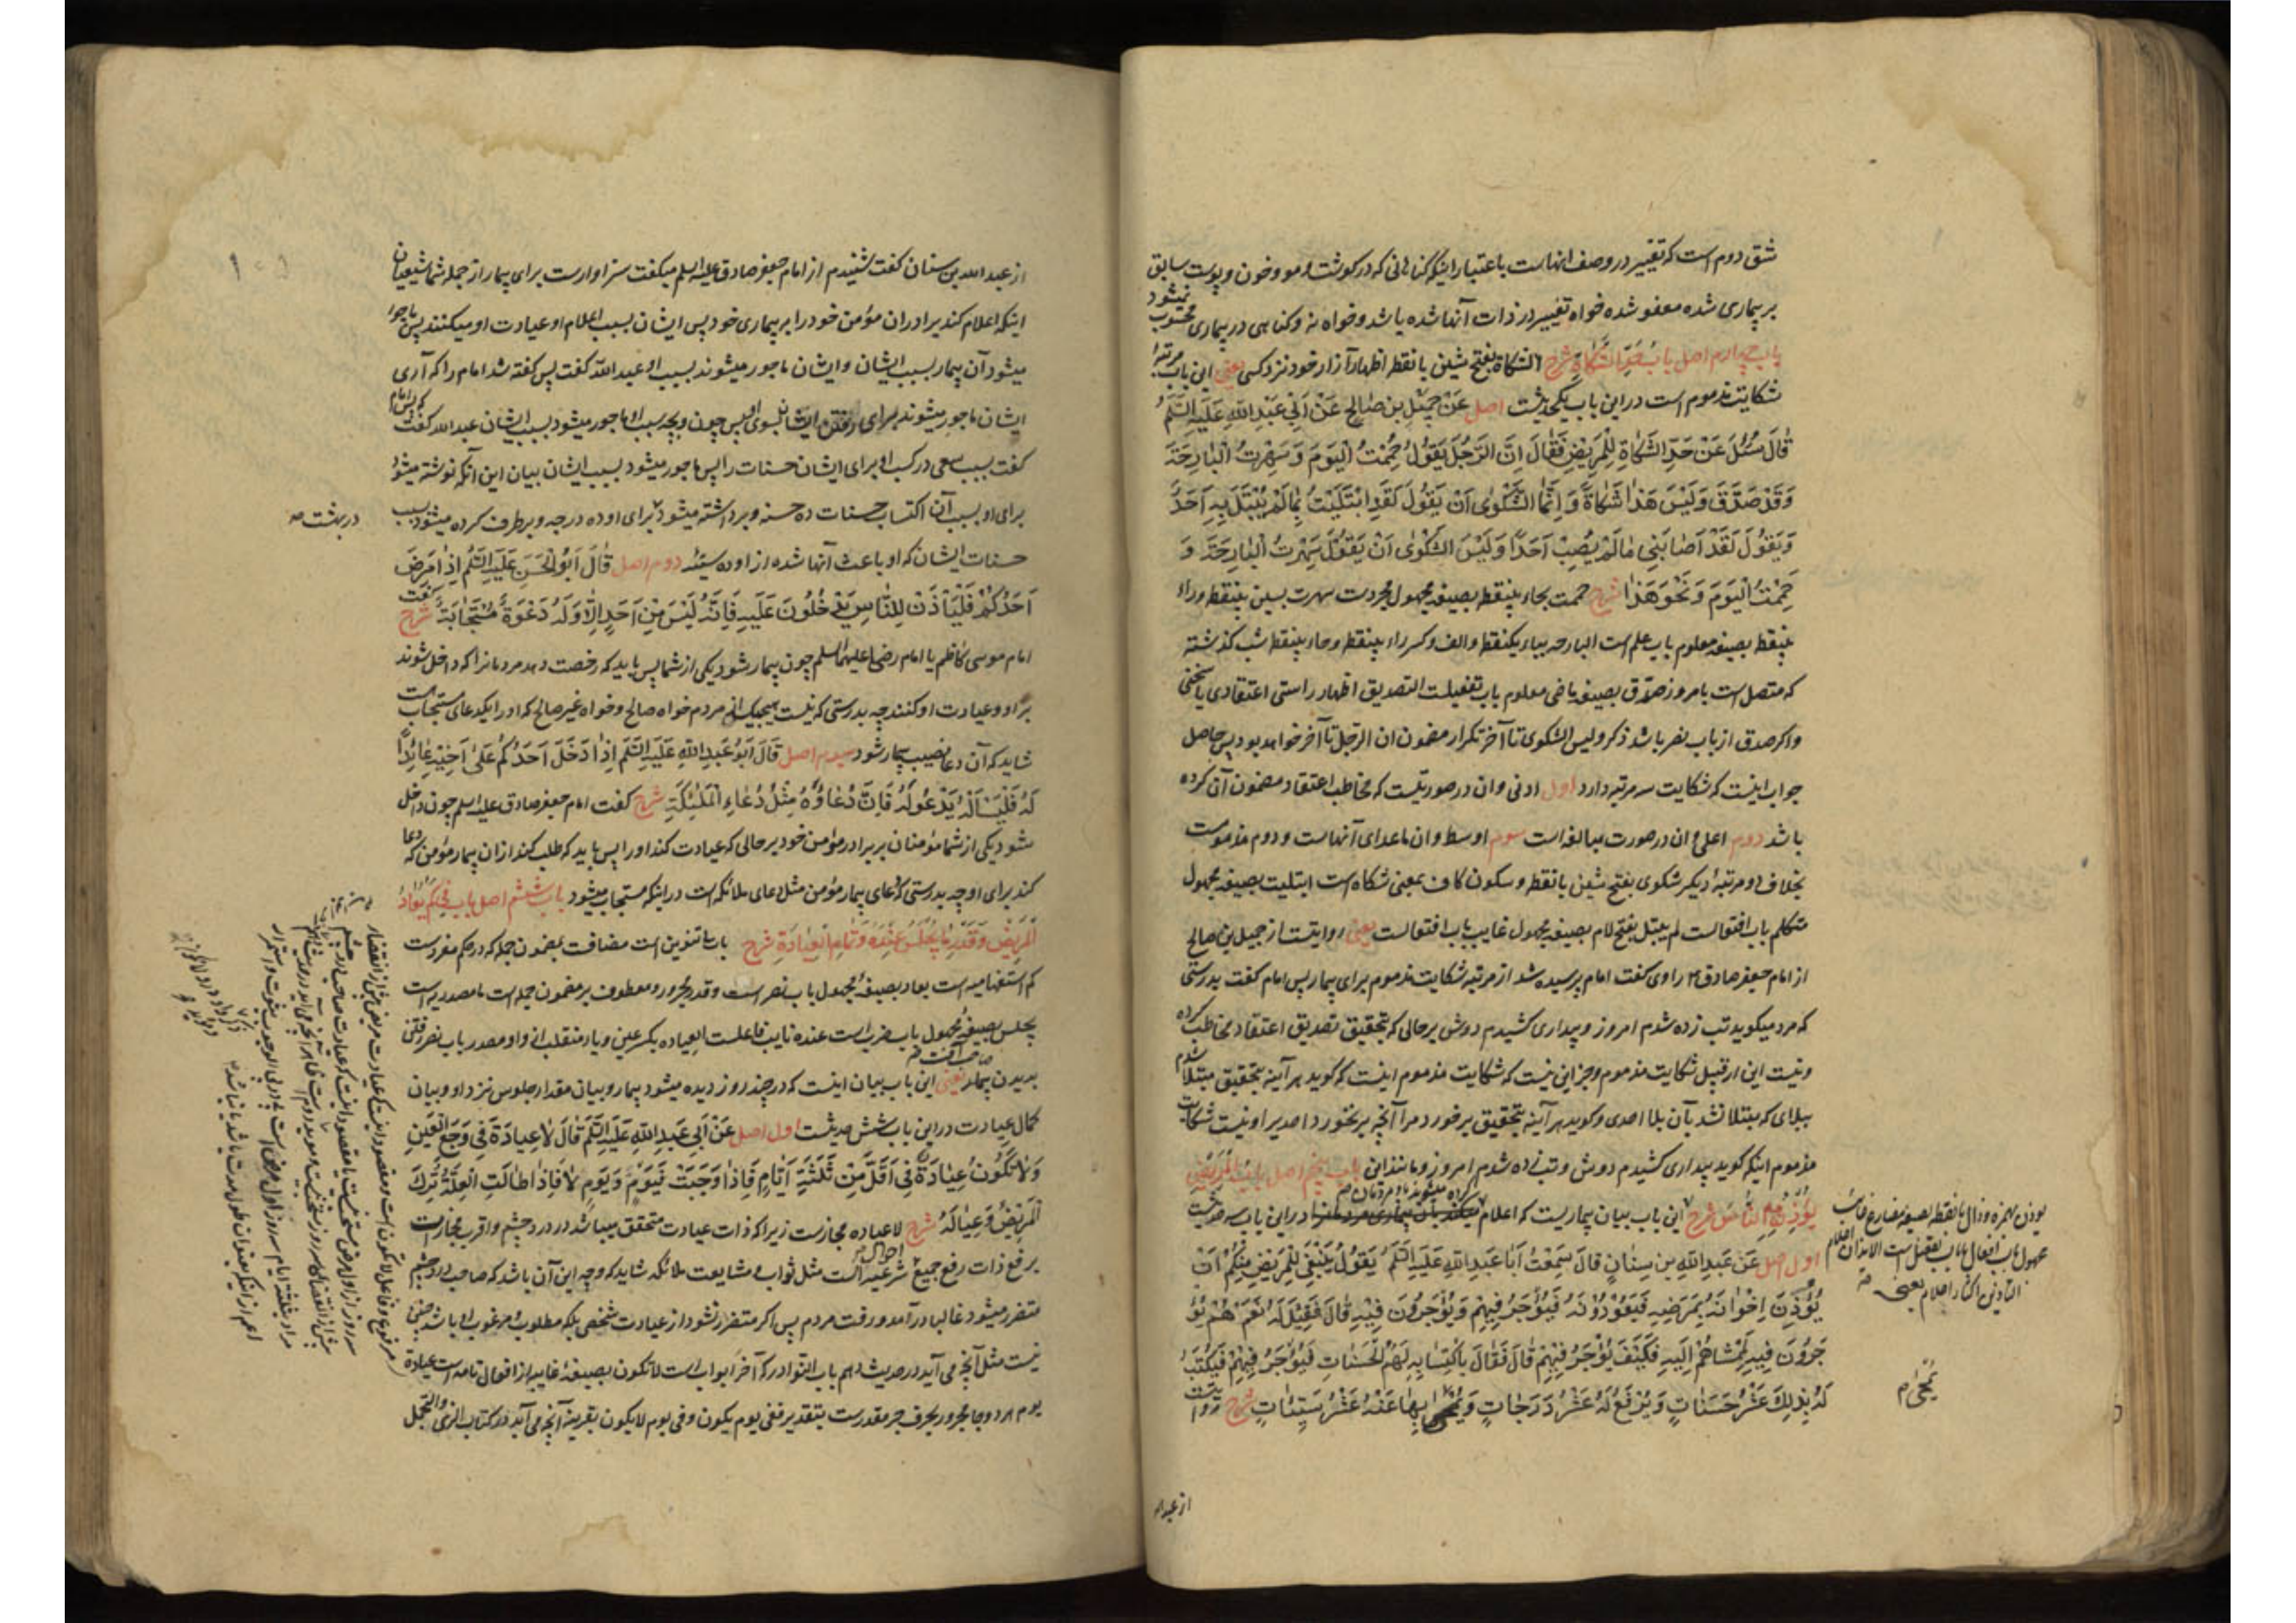 شق دوم است که تغییر در وصف انهاست باعتبار اینکه کناهانی که در کوشت و مو و خون و پوست سابق
بر بیماری شده معفو شده خواه تغییر در ذات آنها شده باشد و خواه نه و کناهی در بیماری محسوب نمیشود
باب چهارم اصل باب حَدِّ الشَّکاةِ شرح الشکاة بفتح شین با نقطه اظهار آزار خود نزد کسی یعنی این باب مرتبهٔ
شکایت مذموم است در این باب یکحدیثست اصل عَنْ جَمیلِ بنِ صٰالِحٍ عَنْ اَبی عَبْدِ اللهِ عَلَیْهِ السَّلَمُ
قٰالَ سُئِلَ عَنْ حَدِّ الشَّکٰاةِ لِلْمَریٖضِ فَقٰالَ اِنَّ الرَّجُلَ یَقوُلُ حُمِمْتُ الْیَوْمَ وَ سَهِرْتُ الْبٰارِحَةَ
وَ قَدْ صَدَّقَ وَ لَیْسَ هَذٰا شَکٰاةً وَ اِنَّمَا الشَّکْوٰی اَنْ یَقوُلَ لَقَدِ ابْتُلیٖتُ بِمٰا لَمْ یُبْتَلَ بِهِ اَحَدٌ
وَ یَقوُلَ لَقَدْ اَصٰابَنیٖ مٰا لَمْ یُصِبْ اَحَدًا وَ لَیْسَ الشَّکْوٰی اَنْ یَقوُلَ سَهِرْتُ الْبٰارِحَةَ وَ
حُمِمْتُ الْیَوْمَ وَ نَحْوَ هَذٰا شرح حممت بحاء بینقطه بصیغه مجهول مجردست سهرت بسین بینقطه و راء
بینقطه بصیغه معلوم باب علم است البارحه بباء یکنقطه و الف و کسر راء بینقطه و حاء بینقطه شب کذشته
که متصل است بامروز صدّق بصیغه ماضی معلوم باب تفعیلت التصدیق اظهار راستی اعتقادی یا سخنی
و اکر صدق از باب نصر باشد ذکر و لیس الشکوی تا آخر تکرار مضمون ان الرجل تا آخر خواهد بود پس حاصل
جواب اینست که شکایت سه مرتبه دارد اول ادنی و ان در صورتیست که مخاطب اعتقاد مضمون آن کرده
باشد دوم اعلی و ان در صورت مبالغه است سوم اوسط و ان ماعدای آنهاست و دوم مذمومست
بخلاف دو مرتبهٔ دیکر شکوی بفتح شین با نقطه و سکون کاف بمعنی شکاه است ابتلیت بصیغه مجهول
متکلم باب افتعالست لم یبتل بفتح لام بصیغه مجهول غایب باب افتعالست یعنی روایتست از جمیل بن صالح
از امام جعفر صادق ع راوی کفت امام پرسیده شد از مرتبه شکایت مذموم برای بیمار پس امام کفت بدرستی
که مرد میکوید تب زده شدم امروز و بیداری کشیدم دوش بر حالی که بتحقیق تصدیق اعتقاد مخاطب کرده
و نیست این از قبیل شکایت مذموم و جز این نیست که شکایت مذموم اینست که کوید هر آینه بتحقیق مبتلا شدم
ببلای که مبتلا نشد بآن بلا احدی و کوید هر آینه بتحقیق برخورد مرا آنچه برنخورد احدیرا و نیست شکایت
مذموم اینکه کوید بیداری کشیدم دوش و تب زده شدم امروز و مانند این باب پنجم اصل بابُ الْمَریضِ
یُؤْذِنُ بِهِ النَّاسَ شرح این باب بیان بیماریست که اعلام کرده میشوند باو مردمان در این باب سه حدیثست
اول اصل عَنْ عَبْدِ اللهِ بنِ سِنٰانٍ قٰالَ سَمِعْتُ اَبٰا عَبْدِ اللهِ عَلَیْهِ السَّلَمُ یَقوُلُ یَنْبَغیٖ لِلْمَریٖضِ مِنْکُمْ اَنْ
یُؤْذِنَ اِخْوٰانَهُ بِمَرَضِهِ فَیَعوُدوُنَهُ فَیُؤْجَرُ فیٖهِمْ وَ یُؤْجَرُونَ فیٖهِ قٰالَ فَقیٖلَ لَهُ نَعَمْ هُمْ یُؤْ
جَرُونَ فیٖهِ لِمَمْشٰاهُمْ اِلَیْهِ فَکَیْفَ یُؤْجَرُ فیٖهِمْ قٰالَ فَقٰالَ بِاکْتِسٰابِهِ لَهُمُ الْحَسَنٰاتِ فَیُؤْجَرُ فیٖهِمْ فَیُکْتَبُ
لَهُ بِذٰلِکَ عَشْرُ حَسَنٰاتٍ وَ یُرْفَعُ لَهُ عَشْرُ دَرَجٰاتٍ وَ یُمْحیٰ بِهٰا عَنْهُ عَشْرُ سَیِّئٰاتٍ شرح روایتست
یوذن بهمزه و ذال با نقطه بصیغه مضارع غایب
مجهول باب افعال یا باب تفعیل است الایذان اعلام
التأذین اکثار اعلام یعنی صه
یُمْحیٰ م
از عبد الله
از عبد الله بن سنان کفت شنیدم از امام جعفر صادق علیه السلم میکفت سزاوارست برای بیمار از جمله شما شیعیان
اینکه اعلام کند برادران مؤمن خود را بر بیماری خود پس ایشان بسبب اعلام او عیادت او میکنند پس ماجور
میشود آن بیمار بسبب ایشان و ایشان ماجور میشوند بسبب او عبد الله کفت پس کفته شد امام را که آری
ایشان ماجور میشوند برای رفتن ایشان بسوی او پس چون و بچه سبب او ماجور میشود بسبب ایشان عبد الله کفت که پس امام
کفت بسبب سعی در کسب او برای ایشان حسنات را پس ماجور میشود بسبب ایشان بیان این آنکه نوشته میشود
برای او بسبب آن اکتساب حسنات ده حسنه و برداشته میشود برای او ده درجه و برطرف کرده میشود بسبب
در بهشت صه
حسنات ایشان که او باعث آنها شده از او ده سیئه دوم اصل قٰالَ اَبوُ الْحَسَنِ عَلَیْهِ السَّلَمُ اِذٰا مَرِضَ
اَحَدُکُمْ فَلْیَأْذَنْ لِلنّٰاسِ یَدْخُلُونَ عَلَیْهِ فَاِنَّهُ لَیْسَ مِنْ اَحَدٍ اِلّٰا وَ لَهُ دَعْوَةٌ مُسْتَجٰابَةٌ شرح کفت
امام موسی کاظم یا امام رضا علیهما السلم چون بیمار شود یکی از شما پس باید که رخصت دهد مردمانرا که داخل شوند
بر او و عیادت او کنند چه بدرستی که نیست هیچیک از مردم خواه صالح و خواه غیر صالح که او را یکدعای مستجابست
شاید که آن دعا نصیب بیمار شود سیوم اصل قٰالَ اَبوُ عَبْدِ اللهِ عَلَیْهِ السَّلَمُ اِذٰا دَخَلَ اَحَدُکُمْ عَلیٰ اَخیٖهِ عٰائِدًا
لَهُ فَلْیَسْأَلْهُ یَدْعوُ لَهُ فَاِنَّ دُعٰاؤُهُ مِثْلُ دُعٰاءِ الْمَلٰئِکَةِ شرح کفت امام جعفر صادق علیه السلم چون داخل
شود یکی از شما مؤمنان بر برادر مؤمن خود بر حالی که عیادت کند او را پس باید که طلب کند از ان بیمار مؤمن که دعا
کند برای او چه بدرستی که دعای بیمار مؤمن مثل دعای ملائکه است در اینکه مستجاب میشود باب ششم اصل باب فی کَمْ یُعٰادُ
الْمَریٖضُ وَ قَدْرِ مٰا یُجْلَسُ عِنْدَهُ وَ تَمٰامِ الْعِیٰادَةِ شرح باب بتنوین است مضافت بمضمون جمله که در حکم مفردست
کم استفهامیه است یعاد بصیغهٔ مجهول باب نصر است و قدر مجرور و معطوف بر مضمون جمله است ما مصدریه است
یجلس بصیغهٔ مجهول باب ضرب است عنده نایب فاعلست العیاده بکسر عین و یاء منقلب از واو مصدر باب نصر رفتن
بدیدن بیمار یعنی این باب بیان اینست که در چند روز دیده میشود بیمار و بیان مقدار جلوس نزد او و بیان
کمال عیادت در این باب شش حدیثست اول اصل عَنْ اَبیٖ عَبْدِ اللهِ عَلَیْهِ السَّلَمُ قٰالَ لٰا عِیٰادَةَ فیٖ وَجَعِ الْعَیْنِ
وَ لٰا تَکُونُ عِیٰادَةٌ فیٖ اَقَلَّ مِنْ ثَلٰثَةِ اَیّٰامٍ فَاِذٰا وَجَبَتْ فَیَوْمٌ وَ یَوْمٌ لٰا فَاِذٰا طٰالَتِ الْعِلَّةُ تُرِکَ
الْمَریٖضُ وَ عِیٰالُهُ شرح لا عیاده مجازست زیرا که ذات عیادت متحقق میباشد در درد چشم و اقرب مجازات
برفع ذات رفع جمیع احوال شرعیه است مثل ثواب و مشایعت ملائکه شاید که وجه این آن باشد که صاحب درد چشم
متضرر میشود غالبا در آمد و رفت مردم پس اکر متضرر نشود از عیادت شخصی بلکه مطلوب و مرغوب او باشد چنین
نیست مثل آنچه می آید در حدیث دهم باب النوادر که آخر ابواب است لا تکون بصیغهٔ غایبه از افعال تامه است عیادة
یوم هر دو جا مجرور بحرف جر مقدرست بتقدیر ففی یوم یکون و فی یوم لا یکون بقرینه آنچه می آید در کتاب الزی و التجمل